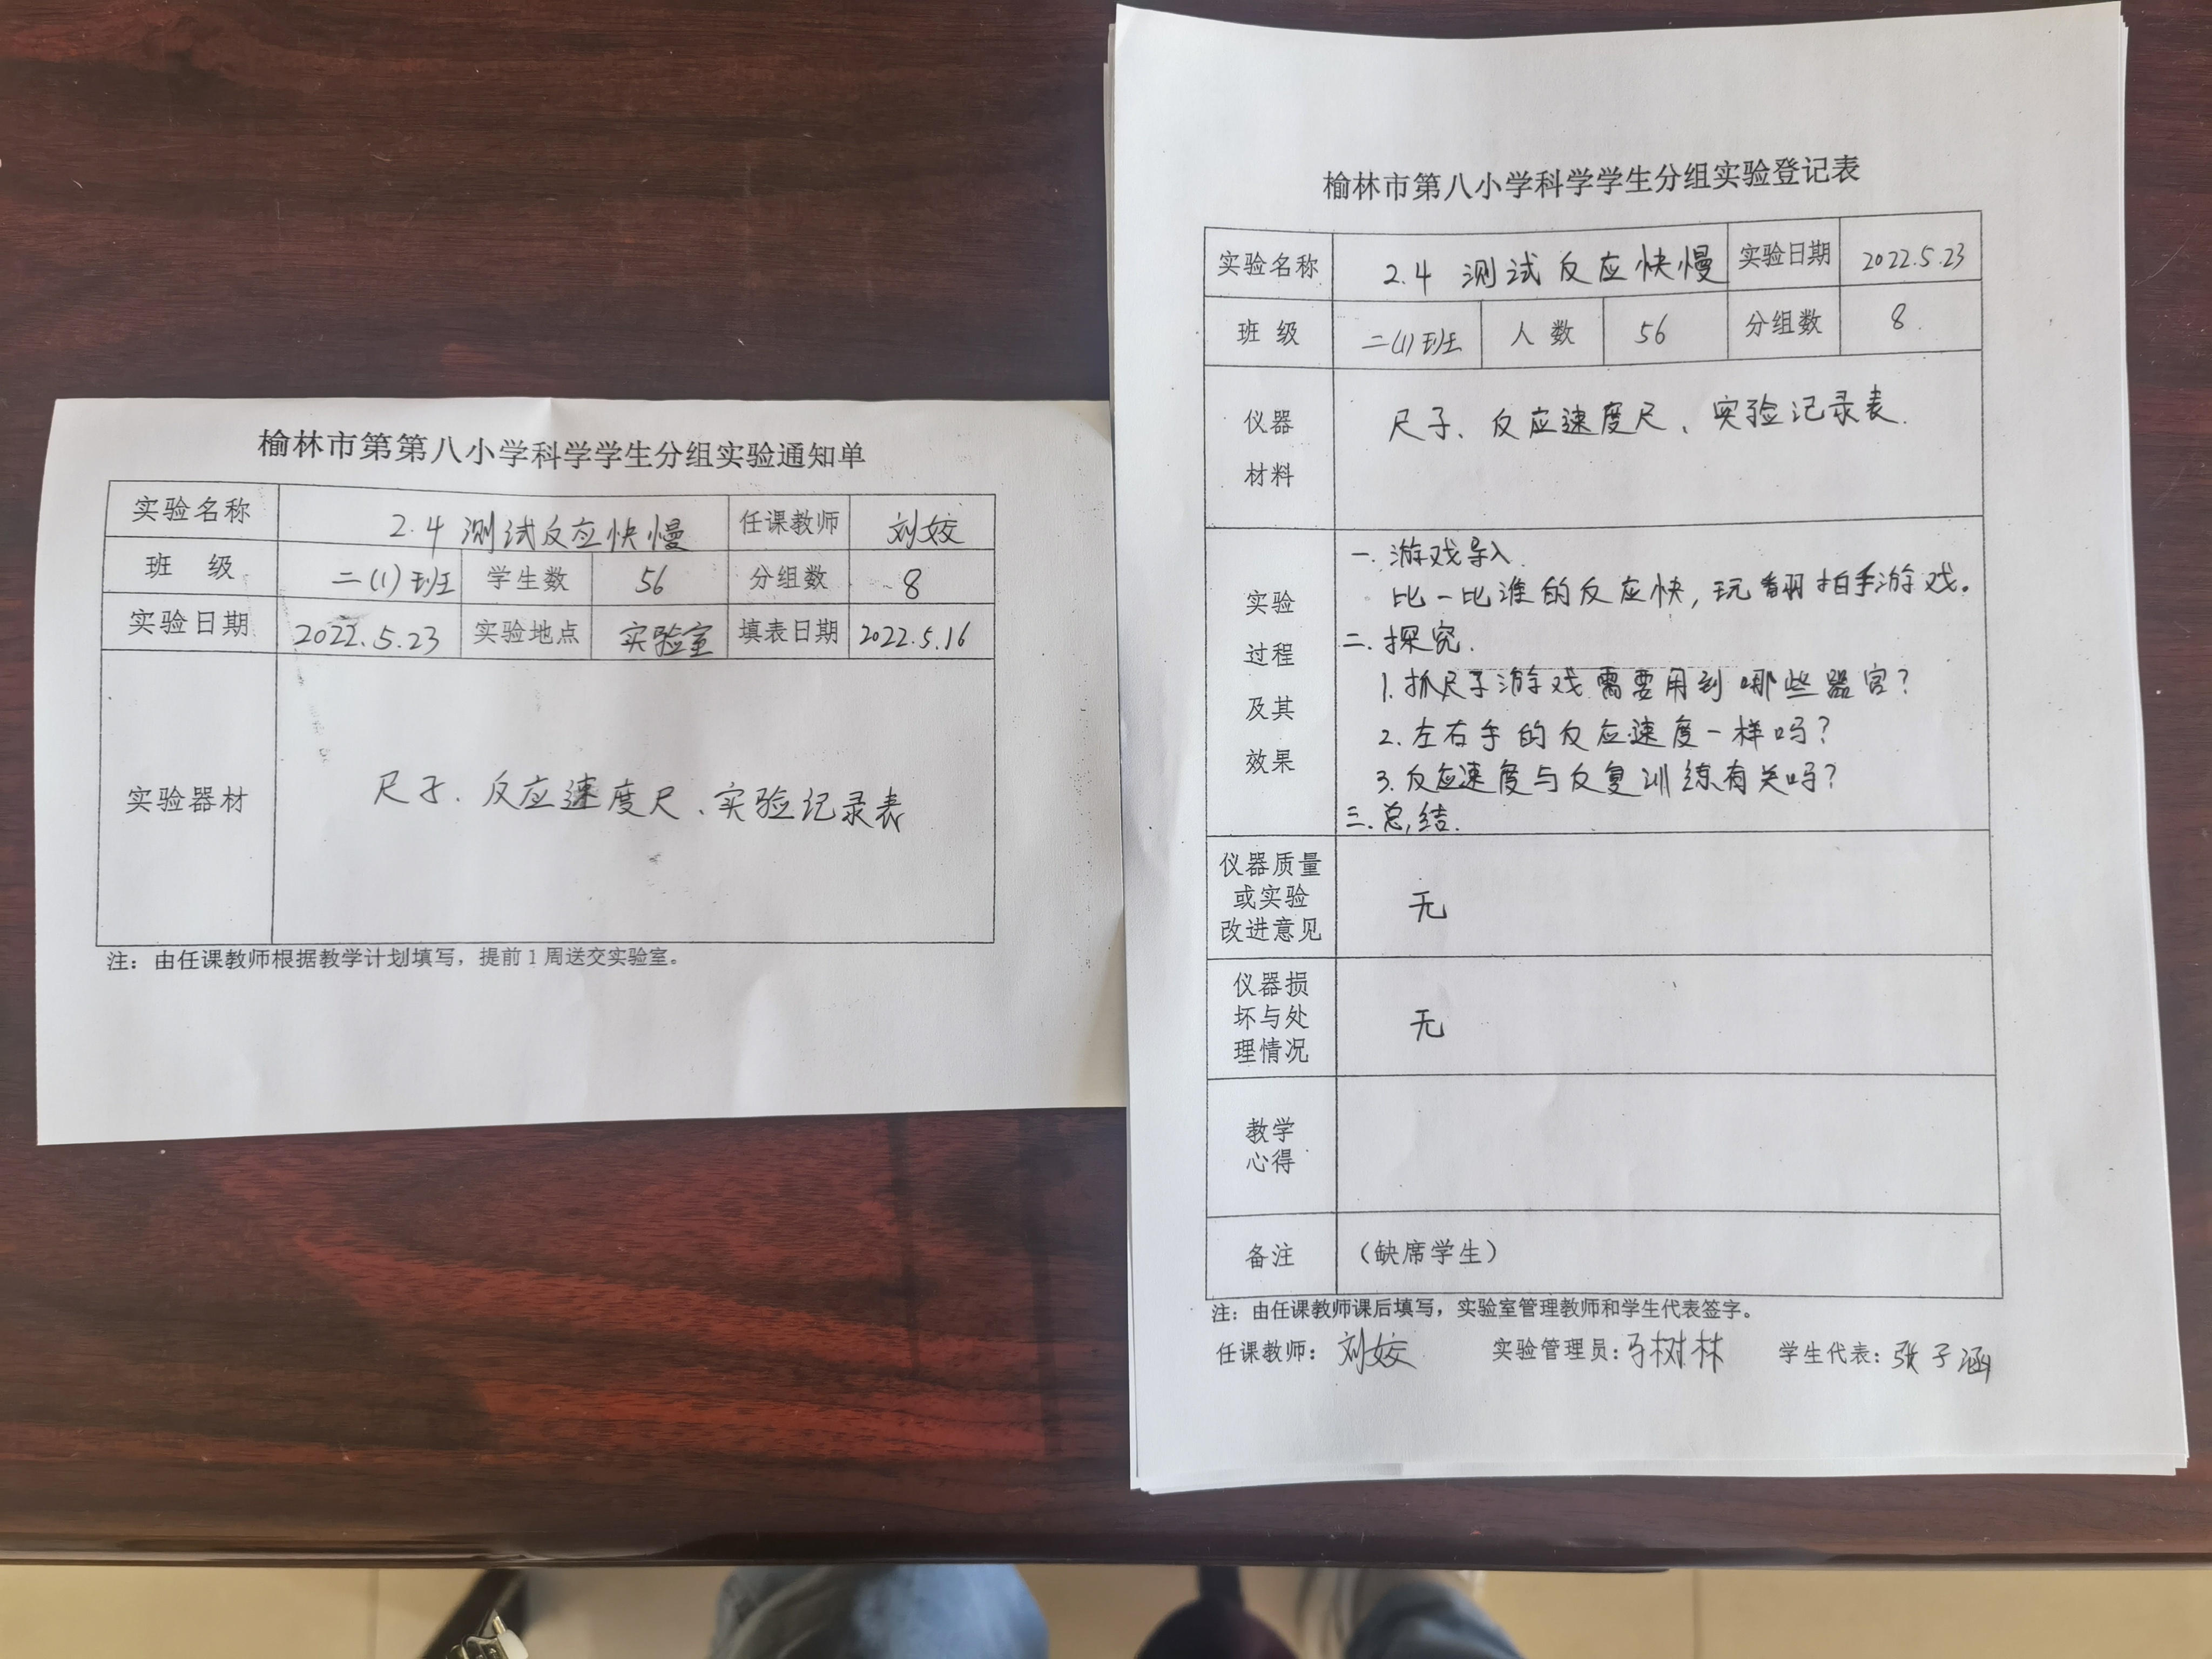 榆林市第第八小学科学学生分组实验通知单
实验名称 2.4 测试反应快慢 任课教师 刘姣
班 级 二(1)班 学生数 56 分组数 8
实验日期 2022.5.23 实验地点 实验室 填表日期 2022.5.16
实验器材 尺子、反应速度尺、实验记录表
注：由任课教师根据教学计划填写，提前1周送交实验室。
榆林市第八小学科学学生分组实验登记表
实验名称 2.4 测试反应快慢 实验日期 2022.5.23
班 级 二(1)班 人 数 56 分组数 8
仪器
材料
尺子、反应速度尺、实验记录表.
实验
过程
及其
效果
一.游戏导入.
比一比谁的反应快,玩翻拍手游戏。
二.探究.
1.抓尺子游戏需要用到哪些器官?
2.左右手的反应速度一样吗?
3.反应速度与反复训练有关吗?
三.总结.
仪器质量
或实验
改进意见
无
仪器损
坏与处
理情况
无
教学
心得
备注 （缺席学生）
注：由任课教师课后填写，实验室管理教师和学生代表签字。
任课教师：刘姣 实验管理员：树林 学生代表：张子涵